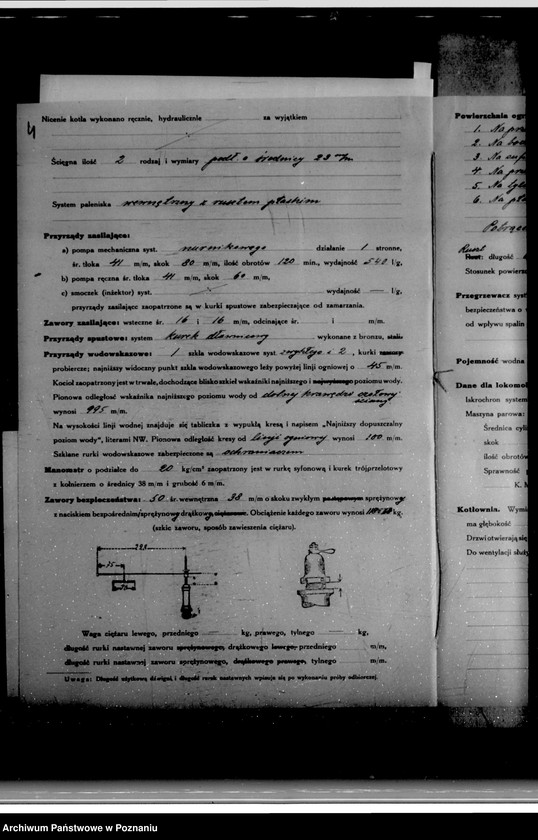 4
Nicenie kotła wykonano ręcznie, hydraulicznie za wyjątkiem
Ścięgna ilość 2 rodzaj i wymiary podł. o średnicy 23 m/m
System paleniska wewnętrzny z rusztem płaskim
Przyrządy zasilające:
a) pompa mechaniczna syst. nurnikowego działanie 1 stronne,
śr. tłoka 41 m/m, skok 80 m/m, ilość obrotów 120 min., wydajność 540 l/g,
b) pompa ręczna śr. tłoka 41 m/m, skok 60 m/m,
c) smoczek (inżektor) syst. — wydajność — l/g,
przyrządy zasilające zaopatrzone są w kurki spustowe zabezpieczające od zamarzania.
Zawory zasilające: wsteczne śr. 16 i 16 m/m, odcinające śr. i m/m.
Przyrządy spustowe: system kurek dławnicowy wykonane z bronzu, stali.
Przyrządy wodowskazowe: 1 szkła wodowskazowe syst. zwykłego i 2, kurki
probiercze; najniższy widoczny punkt szkła wodowskazowego leży powyżej linji ogniowej o 45 m/m.
Kocioł zaopatrzony jest w trwałe, dochodzące blisko szkieł wskaźniki najniższego i najwyższego poziomu wody.
Pionowa odległość wskaźnika najniższego poziomu wody od dolnej krawędzi czołowej ściany
wynosi 995 m/m.
Na wysokości linji wodnej znajduje się tabliczka z wypukłą kresą i napisem „Najniższy dopuszczalny
poziom wody”, literami NW. Pionowa odległość kresy od linji ogniowej wynosi 100 m/m.
Szklane rurki wodowskazowe zabezpieczone są ochraniaczem
Manometr o podziałce do 20 kg/cm² zaopatrzony jest w rurkę syfonową i kurek trójprzelotowy
z kołnierzem o średnicy 38 m/m i grubość 6 m/m.
Zawory bezpieczeństwa: 50 śr. wewnętrzna 38 m/m o skoku zwykłym sprężynowy
z naciskiem bezpośrednim/sprężynowy drążkowy. Obciążenie każdego zaworu wynosi kg.
(szkic zaworu, sposób zawieszenia ciężaru).
75
Waga ciężaru lewego, przedniego — kg, prawego, tylnego — kg,
długość rurki nastawnej zaworu sprężynowego, drążkowego lewego, przedniego m/m,
długość rurki nastawnej zaworu sprężynowego, drążkowego prawego, tylnego m/m.
Uwaga: Długość użytkową dźwigni, i długość rurek nastawnych wpisuje się po wykonaniu próby odbiorczej.
Powierzchnia ogr
1. Na
2. Na
3. Na
4. Na
5. Na
6. Na
Ruszt: długość
Stosunek powierz
Przegrzewacz syst
bezpieczeństwa o
od wpływu spalin
Pojemność wodna
Dane dla lokomo
Iskrochron system
Maszyna parowa:
Średnica cyli
skok
ilość obrotów
Sprawność
K. M
Kotłownia. Wymi
ma głębokość
Drzwi otwierają się
Do wentylacji służ
Archiwum Państwowe w Poznaniu